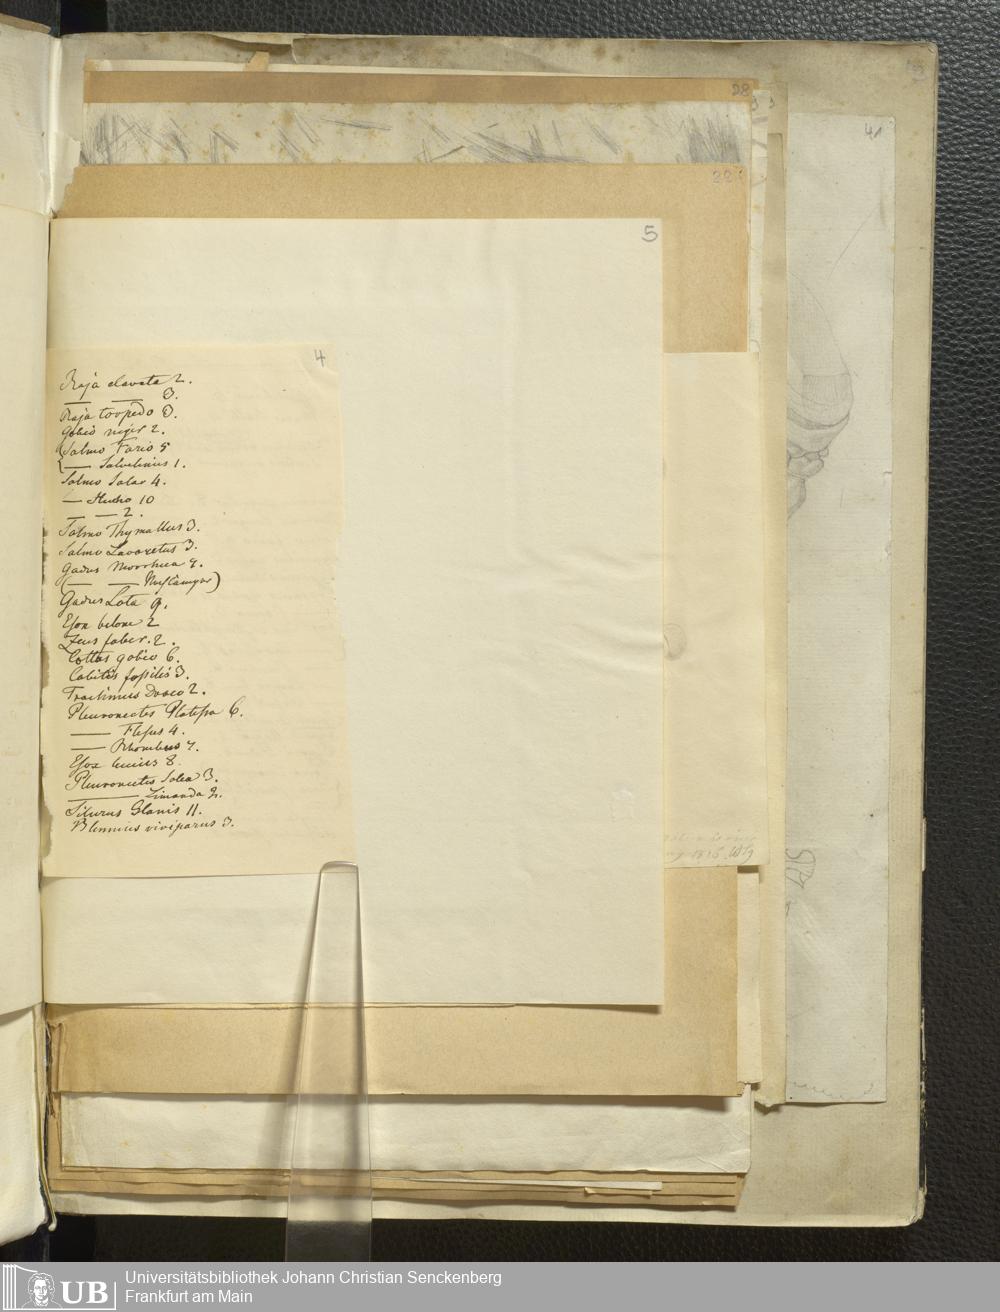 41
28
22
5
4
Raja clavata 2.
— — 3.
Raja torpedo 3.
Gobio niger 2.
Salmo Fario 5
— Salvelinus 1.
Salmo Salar 4.
— Hucho 10
— — 2.
Salmo Thymallus 3.
Salmo Lavaretus 3.
Gadus Morrhua 7.
(— —)
Gadus Lota 9.
Esox belone 2
Zeus faber. 2.
Cottus gobio 6.
Cobitis fossilis 3.
Trachinus Draco 2.
Pleuronectes Platessa 6.
— Flesus 4.
— Rhombus 7.
Esox lucius 8.
Pleuronectes Solea 3.
— Limanda 2.
Silurus Glanis 11.
Blennius viviparus 3.
UB
Universitätsbibliothek Johann Christian Senckenberg
Frankfurt am Main